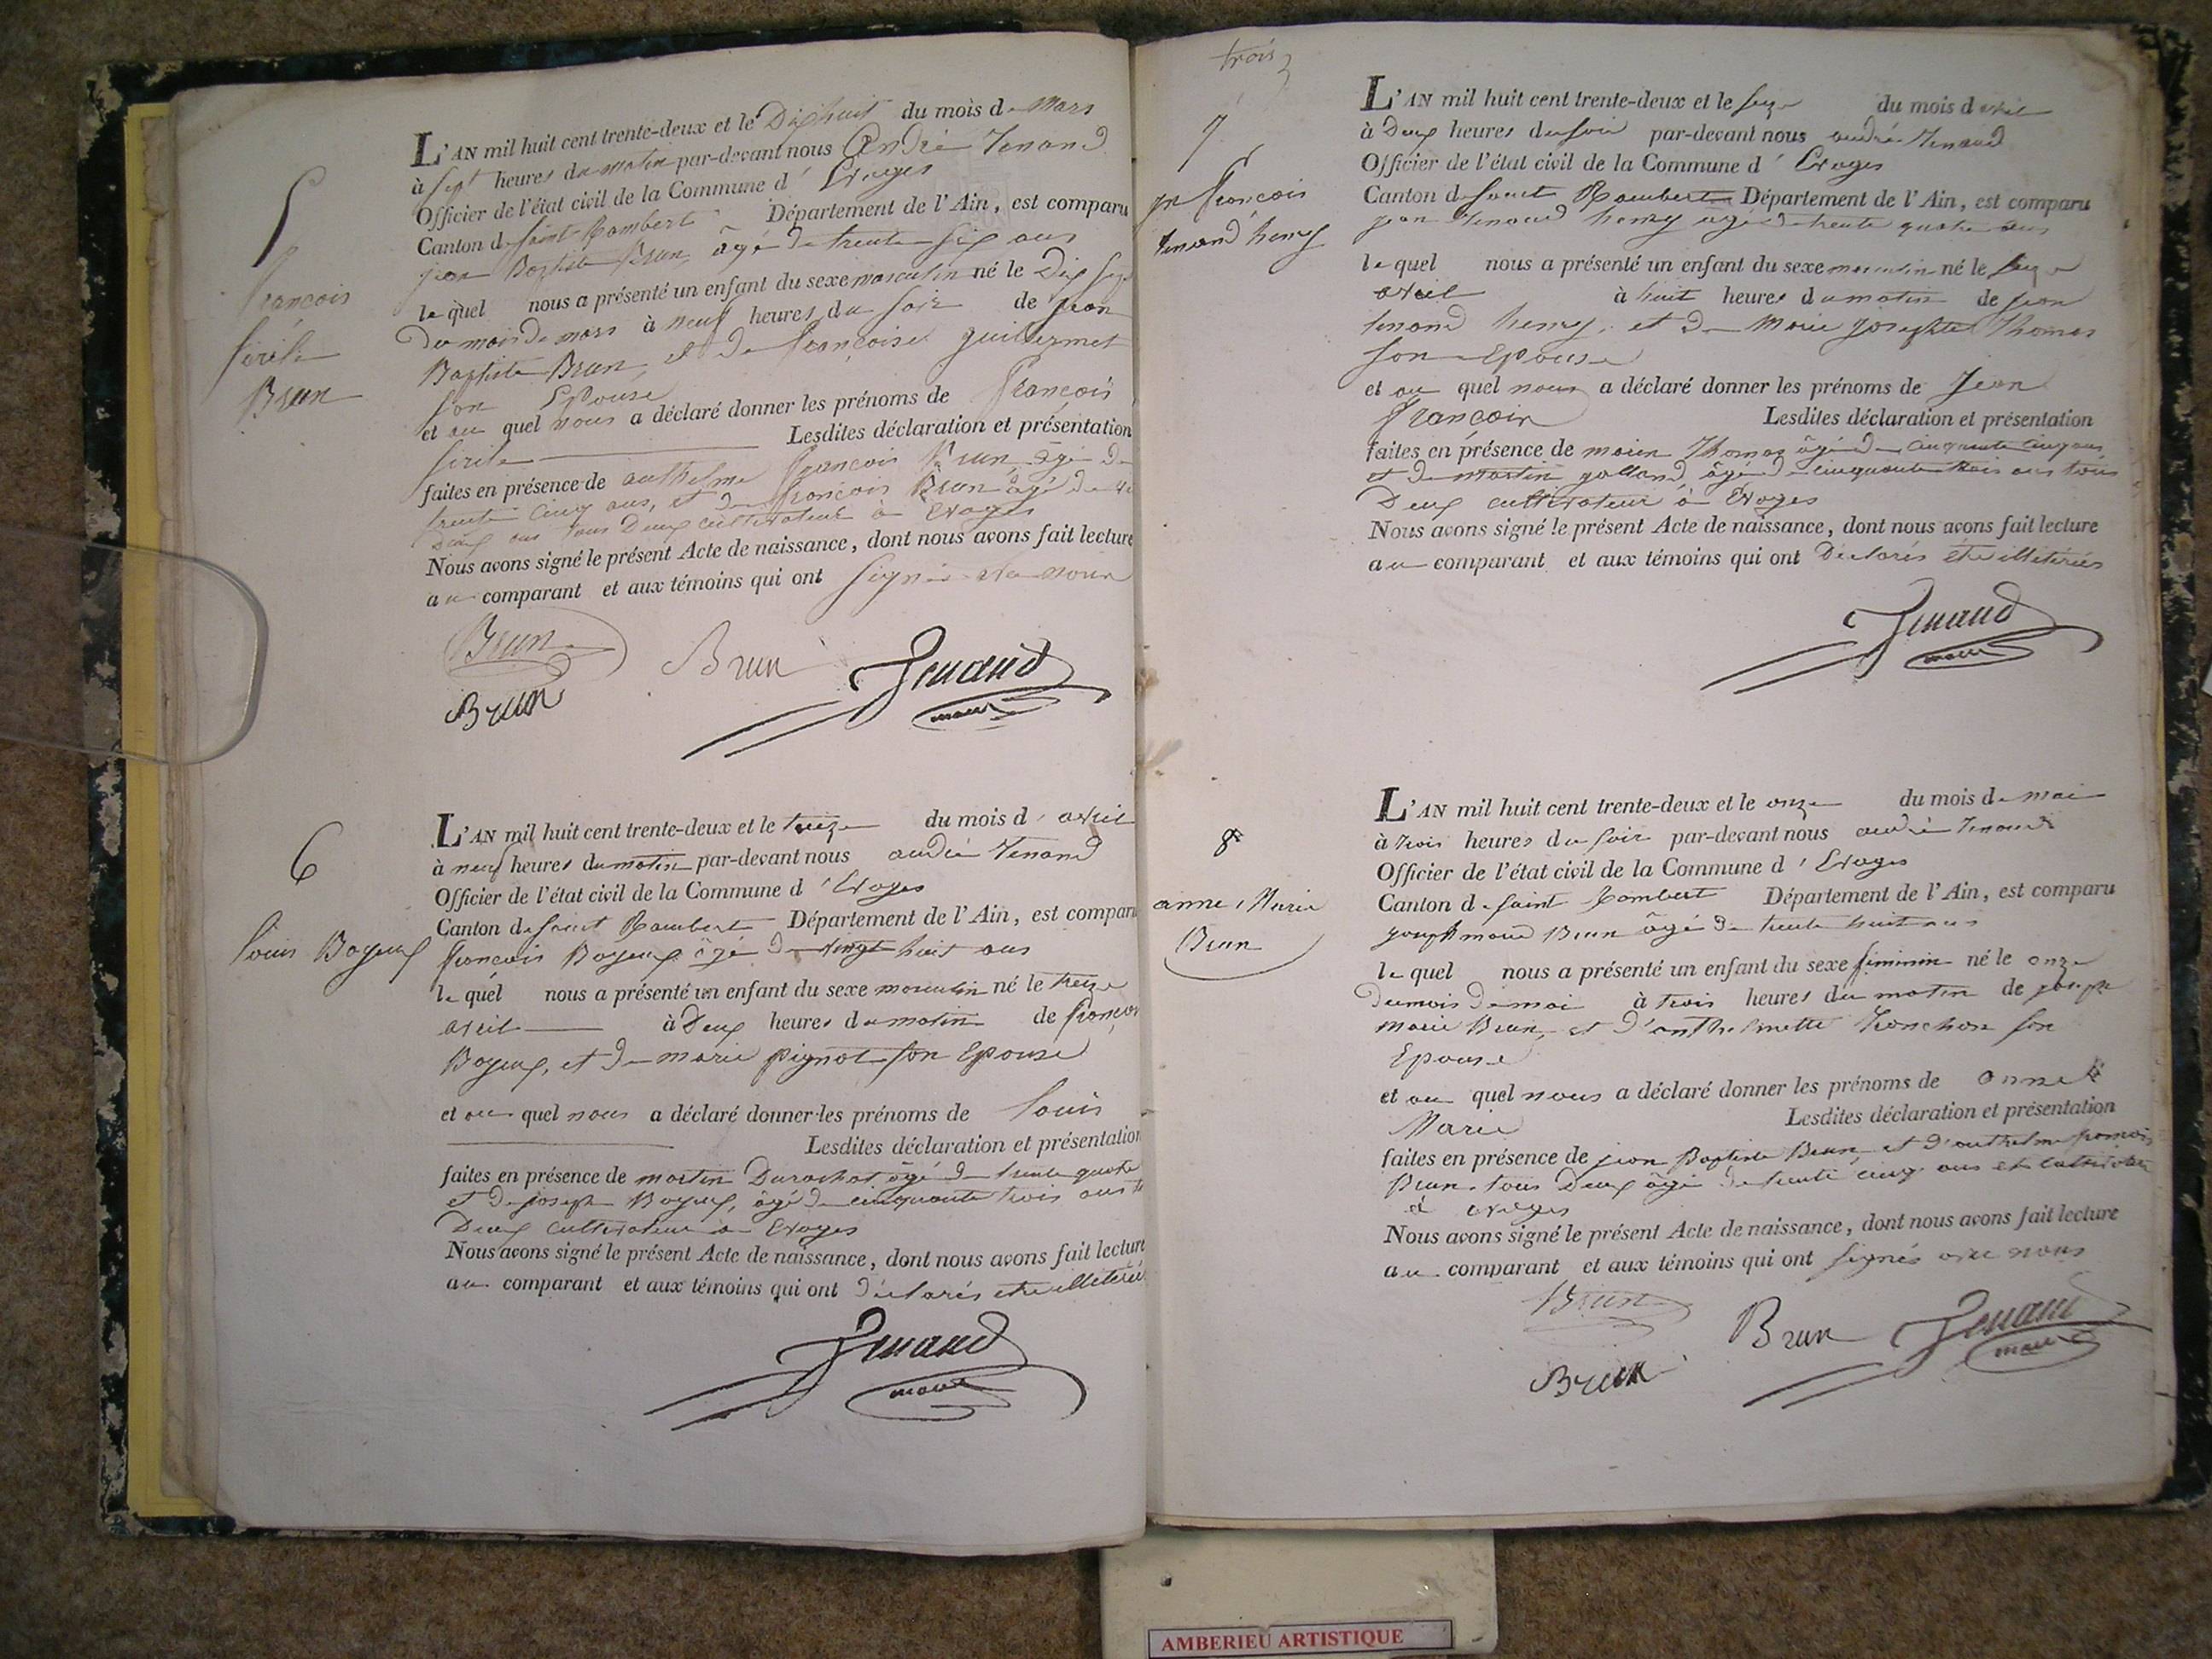 5
François
Sirile
Brun
L'AN mil huit cent trente-deux et le Dix huit du mois de Mars
à Sept heures du matin par-devant nous André Tenand
Officier de l'état civil de la Commune d' Evoges
Canton de Saint Rambert Département de l'Ain, est comparu
jean Baptiste Brun âgé de trente six ans
le quel nous a présenté un enfant du sexe masculin né le Dix Sept
Du mois de mars à neuf heures du soir de jean
Baptiste Brun, et de françoise guillermet
son Epouse
et au quel nous a déclaré donner les prénoms de François
Sirile Lesdites déclaration et présentation
faites en présence de anthelme François Brun, âgé de
trente cinq ans, et de François Brun âgé de
Deux ans tous Deux cultivateur à Evoges
Nous avons signé le présent Acte de naissance, dont nous avons fait lecture
au comparant et aux témoins qui ont Signé avec nous
Brun
Brun
Brun
Tenand
maire
6
Louis Boyeux
L'AN mil huit cent trente-deux et le treize du mois d' avril
à neuf heures du matin par-devant nous andré Tenand
Officier de l'état civil de la Commune d' Evoges
Canton de Saint Rambert Département de l'Ain, est comparu
françois Boyeux âgé de vingt huit ans
le quel nous a présenté un enfant du sexe masculin né le treize
avril à Deux heures du matin de françois
Boyeux, et de marie pignol son Epouse
et au quel nous a déclaré donner les prénoms de Louis
Lesdites déclaration et présentation
faites en présence de martin Durochat âgé de trente quatre
et de joseph Boyeux, âgé de cinquante trois ans
Deux cultivateur à Evoges
Nous avons signé le présent Acte de naissance, dont nous avons fait lecture
au comparant et aux témoins qui ont déclarés etre illeterés
Tenand
maire
trois
7
jn François
tenand henry
L'AN mil huit cent trente-deux et le seize du mois d avril
à Deux heures du soir par-devant nous andré Tenand
Officier de l'état civil de la Commune d' Evoges
Canton de Saint Rambert Département de l'Ain, est comparu
jean tenand henry âgé de trente quatre ans
le quel nous a présenté un enfant du sexe masculin né le seize
avril à huit heures du matin de jean
tenand henry, et de Marie josephte Thomas
son Epouse
et au quel nous a déclaré donner les prénoms de Jean
François Lesdites déclaration et présentation
faites en présence de Thomas âgé de cinquante cinq ans
et de martin golland, âgé de cinquante trois ans tous
Deux cultivateur à Evoges
Nous avons signé le présent Acte de naissance, dont nous avons fait lecture
au comparant et aux témoins qui ont Déclarés être illiterés
Tenand
maire
8
anne Marie
Brun
L'AN mil huit cent trente-deux et le onze du mois de mai
à trois heures du soir par-devant nous andré Tenand
Officier de l'état civil de la Commune d' Evoges
Canton de Saint Rambert Département de l'Ain, est comparu
joseph marie Brun âgé de trente huit ans
le quel nous a présenté un enfant du sexe féminin né le onze
du mois de mai à trois heures du matin de joseph
marie Brun, et d'anthelmette Tronchon son
Epouse
et au quel nous a déclaré donner les prénoms de anne
Marie Lesdites déclaration et présentation
faites en présence de jean Baptiste Brun et d'anthelme françois
Brun tous Deux âgé de trente cinq ans et cultivateur
à Evoges
Nous avons signé le présent Acte de naissance, dont nous avons fait lecture
au comparant et aux témoins qui ont signés avec nous
Brun
Brun
Brun
Tenand
maire
AMBERIEU ARTISTIQUE